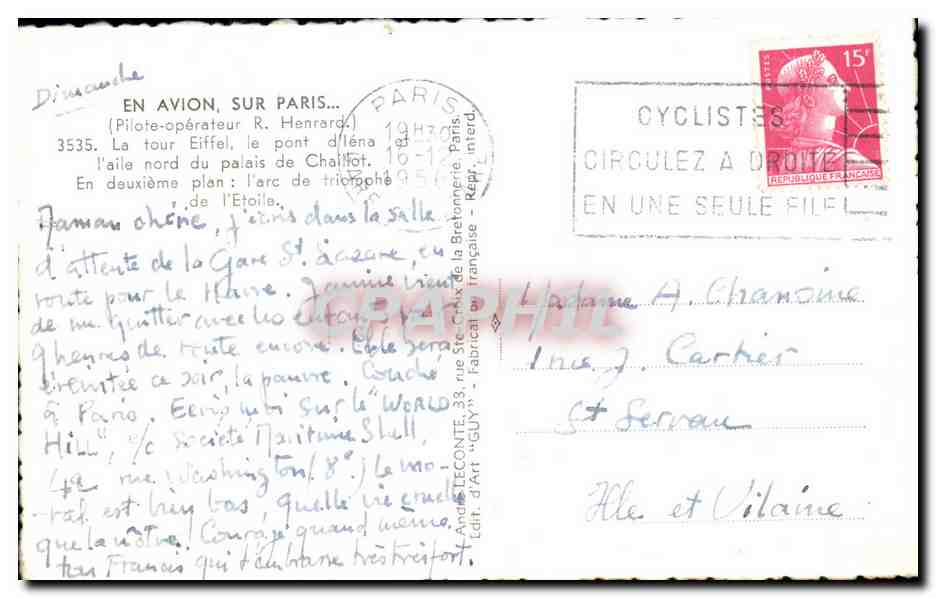 Dimanche
EN AVION, SUR PARIS...
(Pilote-opérateur R. Henrard.)
3535. La tour Eiffel, le pont d'Iéna et
l'aile nord du palais de Chaillot.
En deuxième plan : l'arc de triomphe
de l'Etoile.
Maman chérie, j'écris dans la salle
d'attente de la Gare St Lazare, en
route pour le Havre. Jeannine vient
de me quitter avec les enfants pour
9 heures de route encore. Elle sera
éreintée ce soir, la pauvre. Couché
à Paris. Ecris moi sur le "WORLD
HILL", c/o Société Maritime Shell,
42 rue Washington (8e.) Le mo-
ral est bien bas, quelle vie cruelle
que la nôtre! Courage quand même
ton Francis qui t'embrasse très très fort.
André LECONTE, 38, rue Ste-Croix de la Bretonnerie, Paris.
Edit. d'Art "GUY" - Fabrication française - Repr. interd.
PARIS
19H30
16-12
1956
CYCLISTES
CIRCULEZ A DROITE
EN UNE SEULE FILE!
POSTES
15F
REPUBLIQUE FRANÇAISE
CPAPHIL
Madame A. Chanoine
1 rue J. Cartier
St Servan
Ille et Vilaine